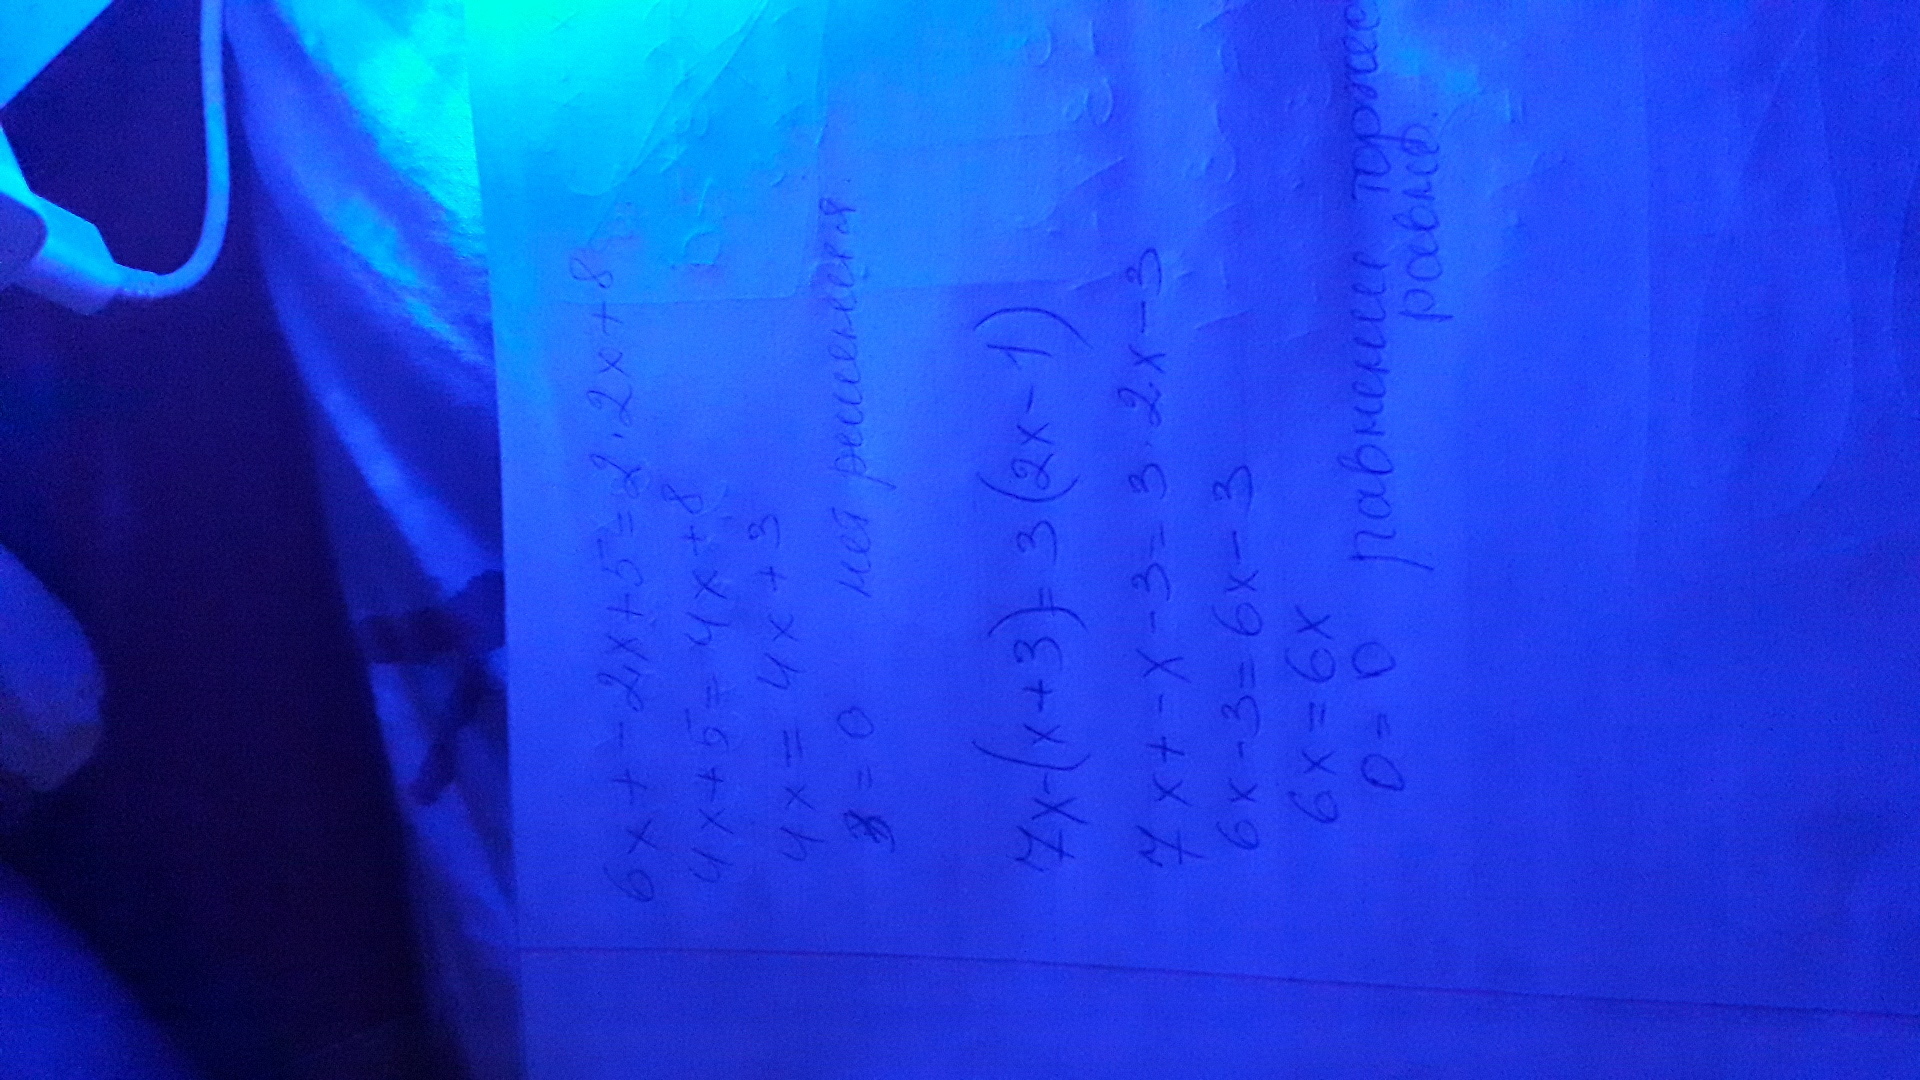 6x+-2x+5=2·2x+8
4x+5=4x+8
4x=4x+3
3=0 нет решенеия
7x-(x+3)=3(2x-1)
7x+-x-3=3·2x-3
6x-3=6x-3
6x=6x
0=0